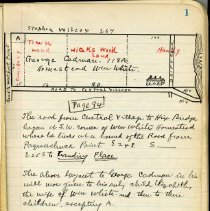 1
Stephen Wilcox 254
A
Town
Road
Wicks Wood
Land
George Cadman - 118A
Homestead Wm White.
Road to Central Village
Page 94
The road from Central Village to Hix Bridge
began at S.W. corner of Wm White homestead
where he lived at a bound of the Road from
Paquachuck Point S 24 E S
E 205 S to Landing Place
The above bequest to George Cadman in his
will was given to his only child Elizabeth,
the wife of Wm White and then to their
children, excepting A